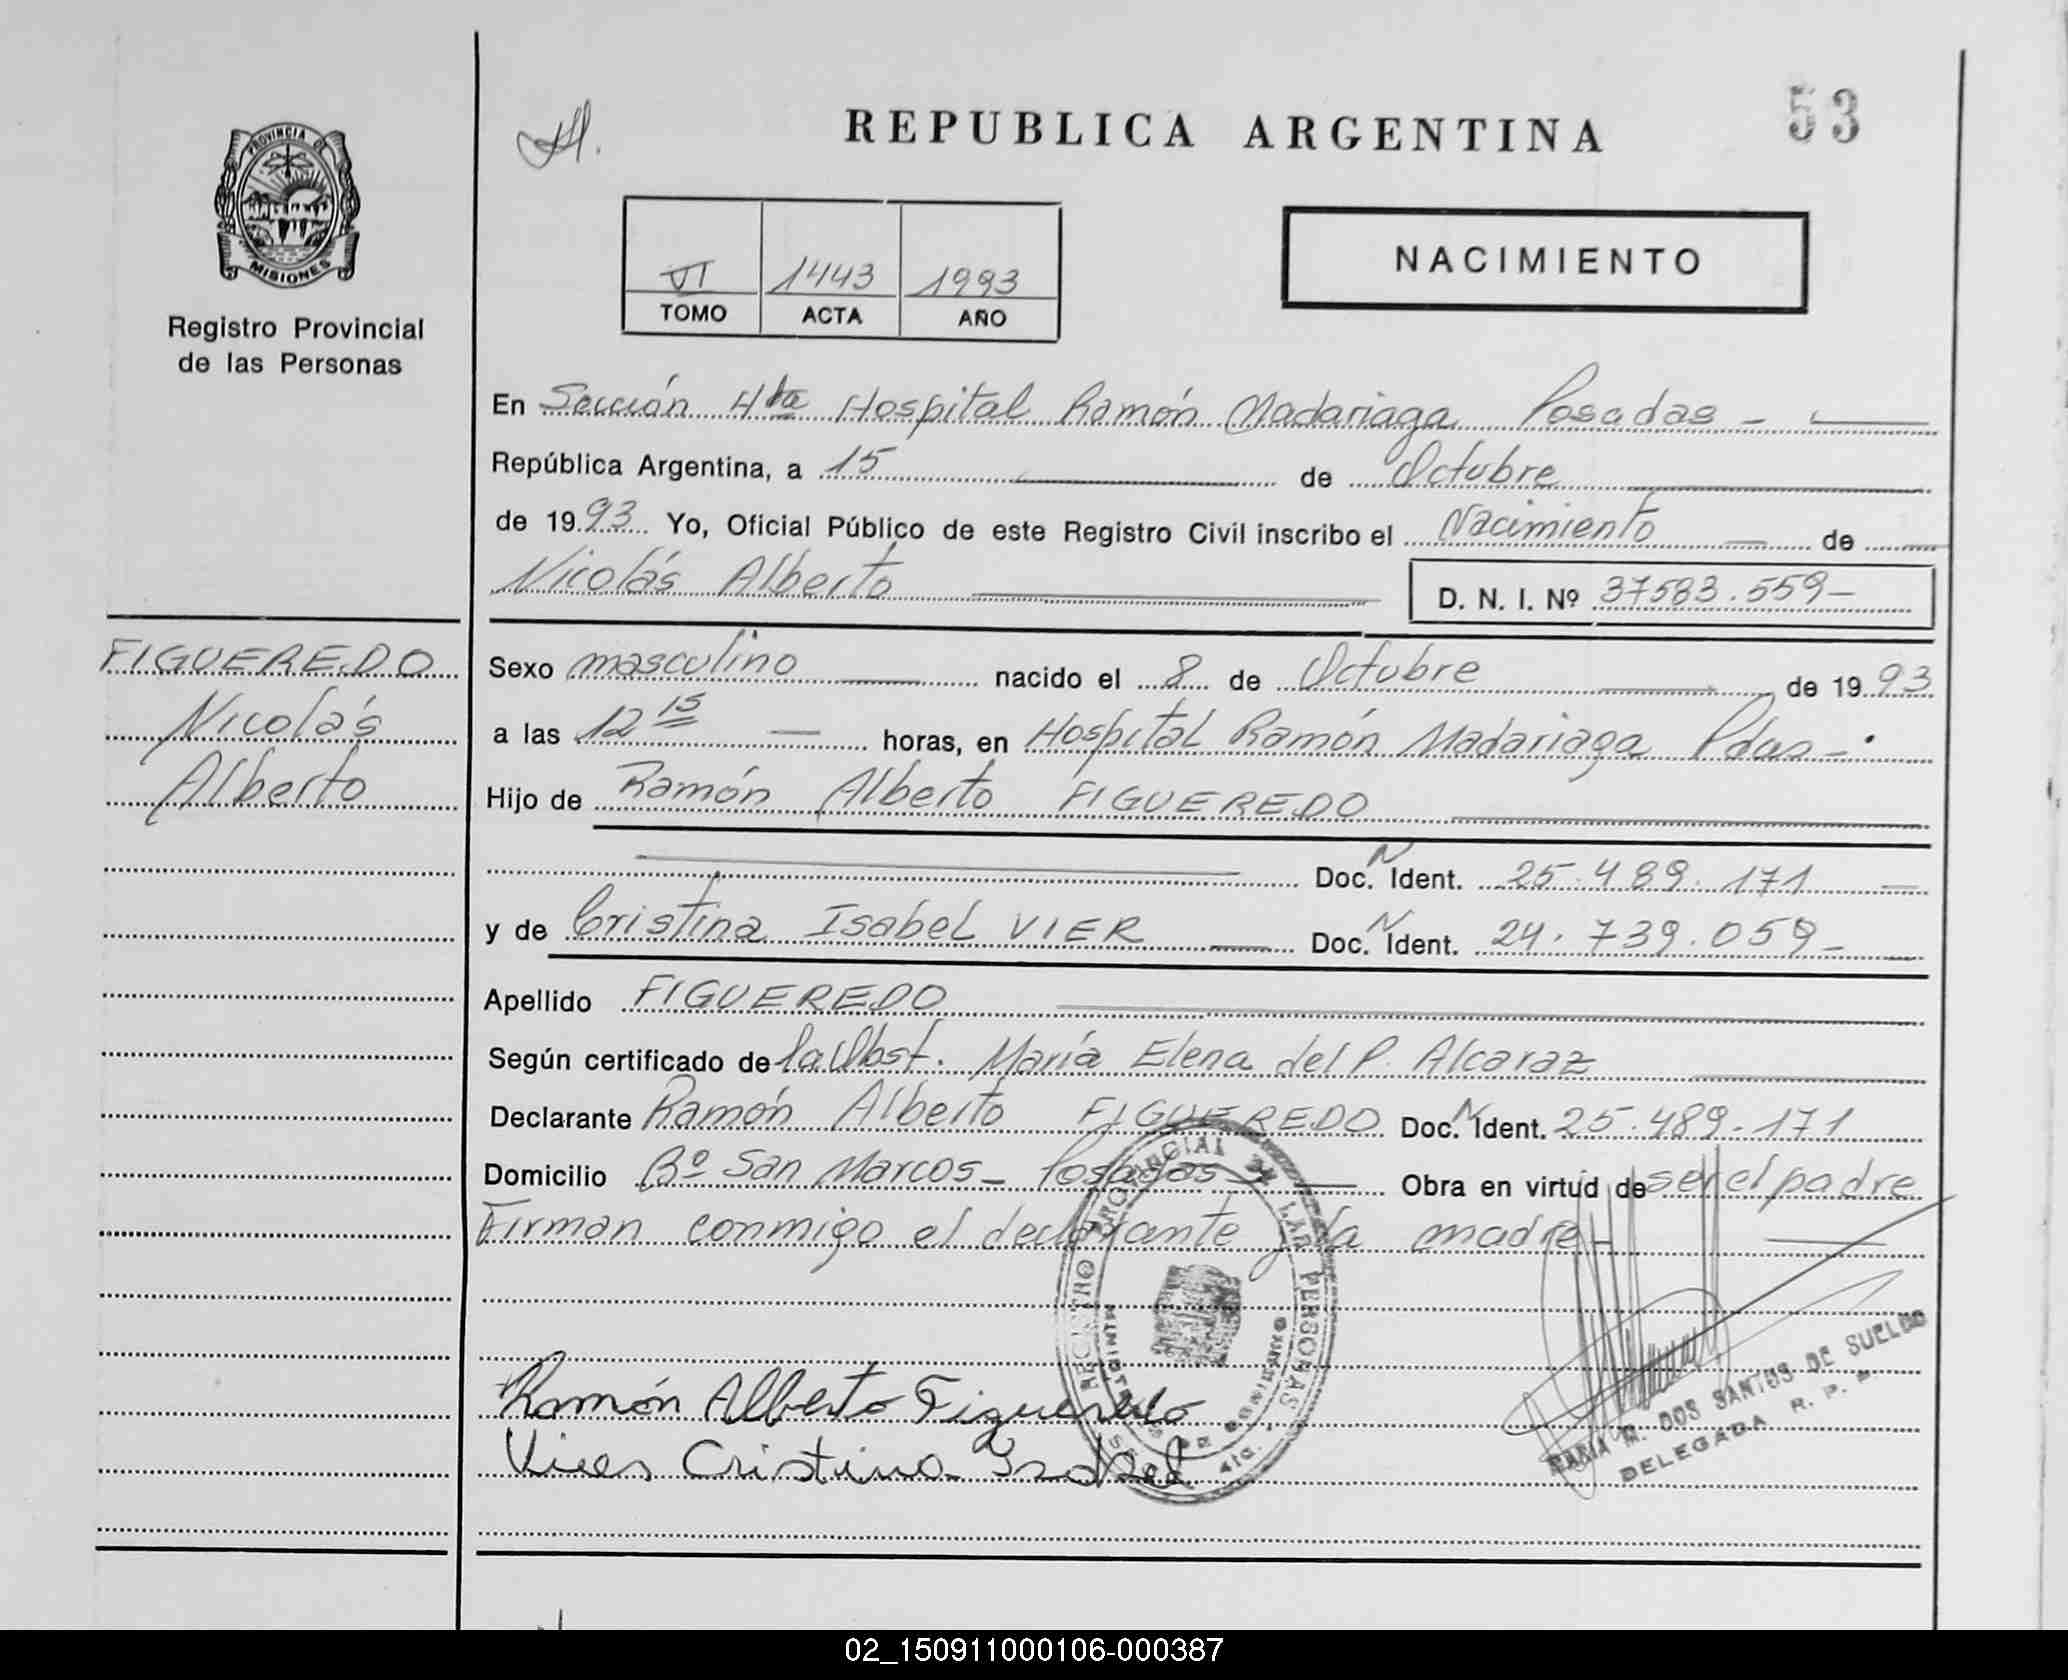 53
REPUBLICA ARGENTINA
PROVINCIA DE
MISIONES
Registro Provincial
de las Personas
NACIMIENTO
VI 1443 1993
TOMO ACTA AÑO
En Sección 4ta Hospital Ramón Madariaga Posadas -
República Argentina, a 15 de Octubre
de 1993 Yo, Oficial Público de este Registro Civil inscribo el Nacimiento de
Nicolás Alberto D. N. I. Nº 37583.559-
FIGUEREDO
Nicolás
Alberto
Sexo masculino nacido el 8 de Octubre de 1993
a las 12 15 horas, en Hospital Ramón Madariaga Pdas-.
Hijo de Ramón Alberto FIGUEREDO
Doc. N Ident. 25.489.171
y de Cristina Isabel VIER Doc. N Ident. 24.739.059-
Apellido FIGUEREDO
Según certificado de la Obst. María Elena del P. Alcaraz
Declarante Ramón Alberto FIGUEREDO Doc. N Ident. 25.489.171
Domicilio Bº San Marcos- Posadas- Obra en virtud de ser el padre
Firman conmigo el declarante y la madre-
REGISTRO PROVINCIAL DE LAS PERSONAS
MINISTERIO DE GOBIERNO
SECC. 4ta.
Ramón Alberto Figueredo
Vier Cristina Isabel
MARIA M. DOS SANTOS DE SUELDO
DELEGADA R. P. P.
02_150911000106-000387